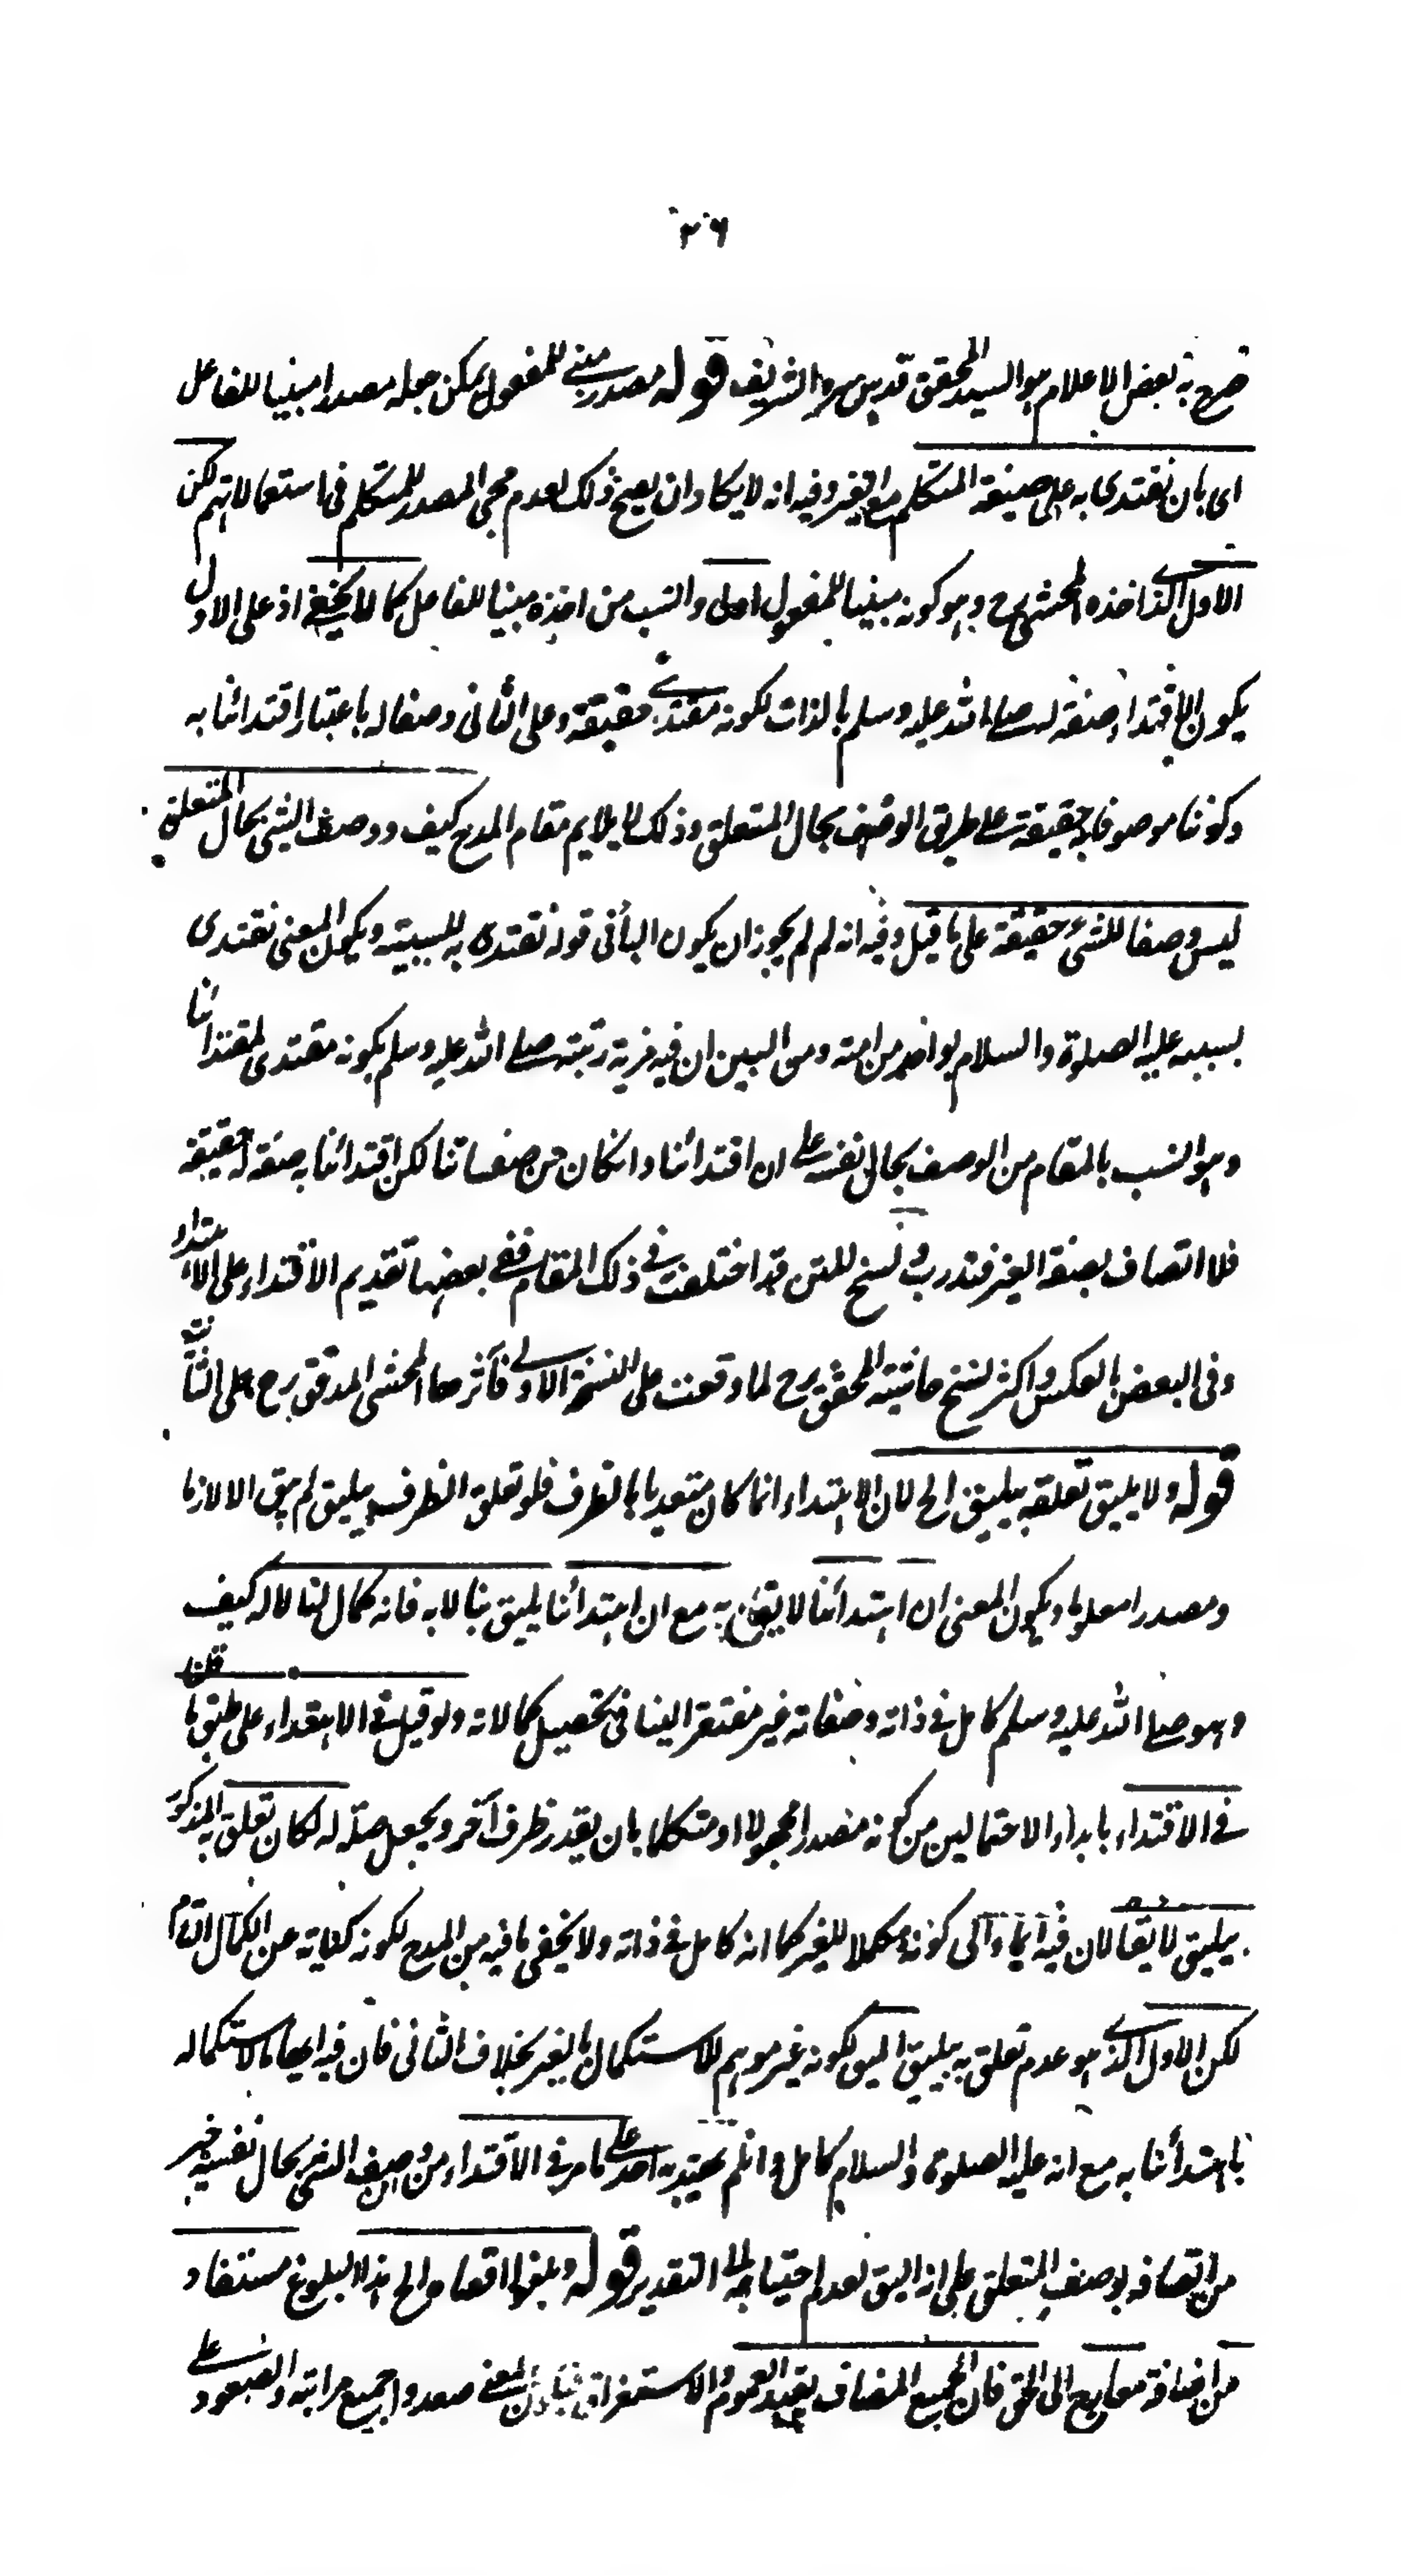 ٢٦
صرح به بعض الاعلام هو السيد المحقق قدس سره الشريف قوله مصدر مبنى للمفعول يمكن جعله مصدرا مبنيا للفاعل
اى بان نقتدى به على صيغة المتكلم مع الغير وفيه انه لا يكاد ان يصح ذلك لعدم مجئ المصدر للمتكلم فى استعمالاتهم لكن
الاول الذى اخذه المحشى رح وهو كونه مبنيا للمفعول اولى وانسب من اخذه مبنيا للفاعل كما لا يخفى اذ على الاول
يكون الاقتداء صفة له صلى الله عليه وسلم بالذات لكونه مقتدى حقيقة وعلى الثانى وصفا له باعتبار اقتدائنا به
وكوننا موصوفا به حقيقة على طريق الوصف بحال المتعلق وذلك لا يلايم مقام المدح كيف ووصف الشئ بحال المتعلق
ليس وصفا للشئ حقيقة على ما قيل وفيه انه لم لم يجوز ان يكون الباء فى قوله نقتدى به للسببية ويكون المعنى نقتدى
بسببه عليه الصلوة والسلام بواحد من امته ومن البين ان فيه مزية رتبته صلى الله عليه وسلم بكونه مقتدى لمقتدانا
وهو انسب بالمقام من الوصف بحال نفسه على ان اقتدائنا وانكان من صفاتنا لكن اقتدائنا به صفة له حقيقة
فلا اتصاف بصفة الغير فتدرب ونسخ للمتن قد اختلفت فى ذلك المقام ففى بعضها تقديم الاقتداء على الاهتداء
وفى البعض بالعكس واكثر نسخ حاشية المحقق رح لما وقعت على النسخة الاولى فآثرها المحشى المدقق رح على الثانية
قوله ولا يليق تعلقه بيليق الخ لان الاهتداء انما كان متعديا بالظرف فلو تعلق الظرف بيليق لم يبق الا لازما
ومصدرا معلوما ويكون المعنى ان اهتدائنا لا يق به مع ان اهتدائنا يليق بنا لا به فانه كمال لنا لا له كيف
وهو صلى الله عليه وسلم كامل فى ذاته وصفاته غير مفتقر الينا فى تحصيل كمالاته ولو قيل فى الاهتداء على طبق ما قلنا
فى الاقتداء بابداء الاحتمالين من كونه مصدرا مجهولا او متكلما بان يقدر ظرف آخر ويجعل صلة له لكان تعلق به المذكور
بيليق لايقا لان فيه ايماء الى كونه مكملا للغير كما انه كامل فى ذاته ولا يخفى ما فيه من المدح لكونه كناية عن الكمال التام
لكن الاول الذى هو عدم تعلق به بيليق اليق لكونه غير موهم للاستكمال بالغير بخلاف الثانى فان فيه ايهاما لاستكماله
باهتدائنا به مع انه عليه الصلوة والسلام كامل وانلم يهتد به احد على ما مر فى الاقتداء من ان وصف الشئ بحال نفسه خير
من اتصافه بوصف المتعلق على انه اليق لعدم احتياجه الى التقدير قوله وبلغوا اقصاه الخ هذا البلوغ مستفاد
من اضافة معارج الى الحق فان الجمع المضاف يفيد العموم والاستغراق المعنى صعدوا جميع مراتبه والصعود على